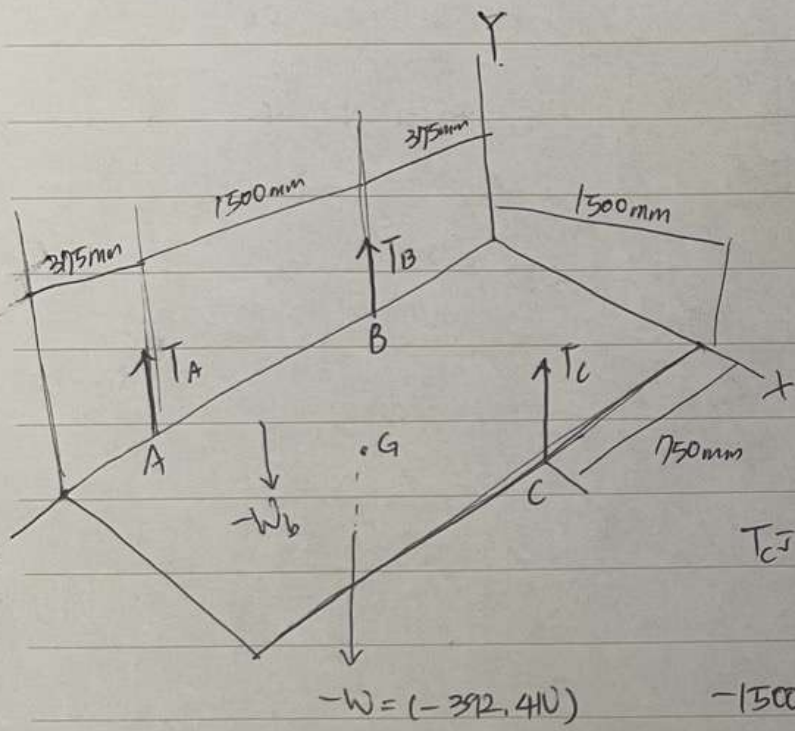 Y
375mm
1500mm
1500mm
375mm
TB
B
TA
TC
X
A
G
750mm
C
-Wb
TC=
-W=(-392.41N)
-1500